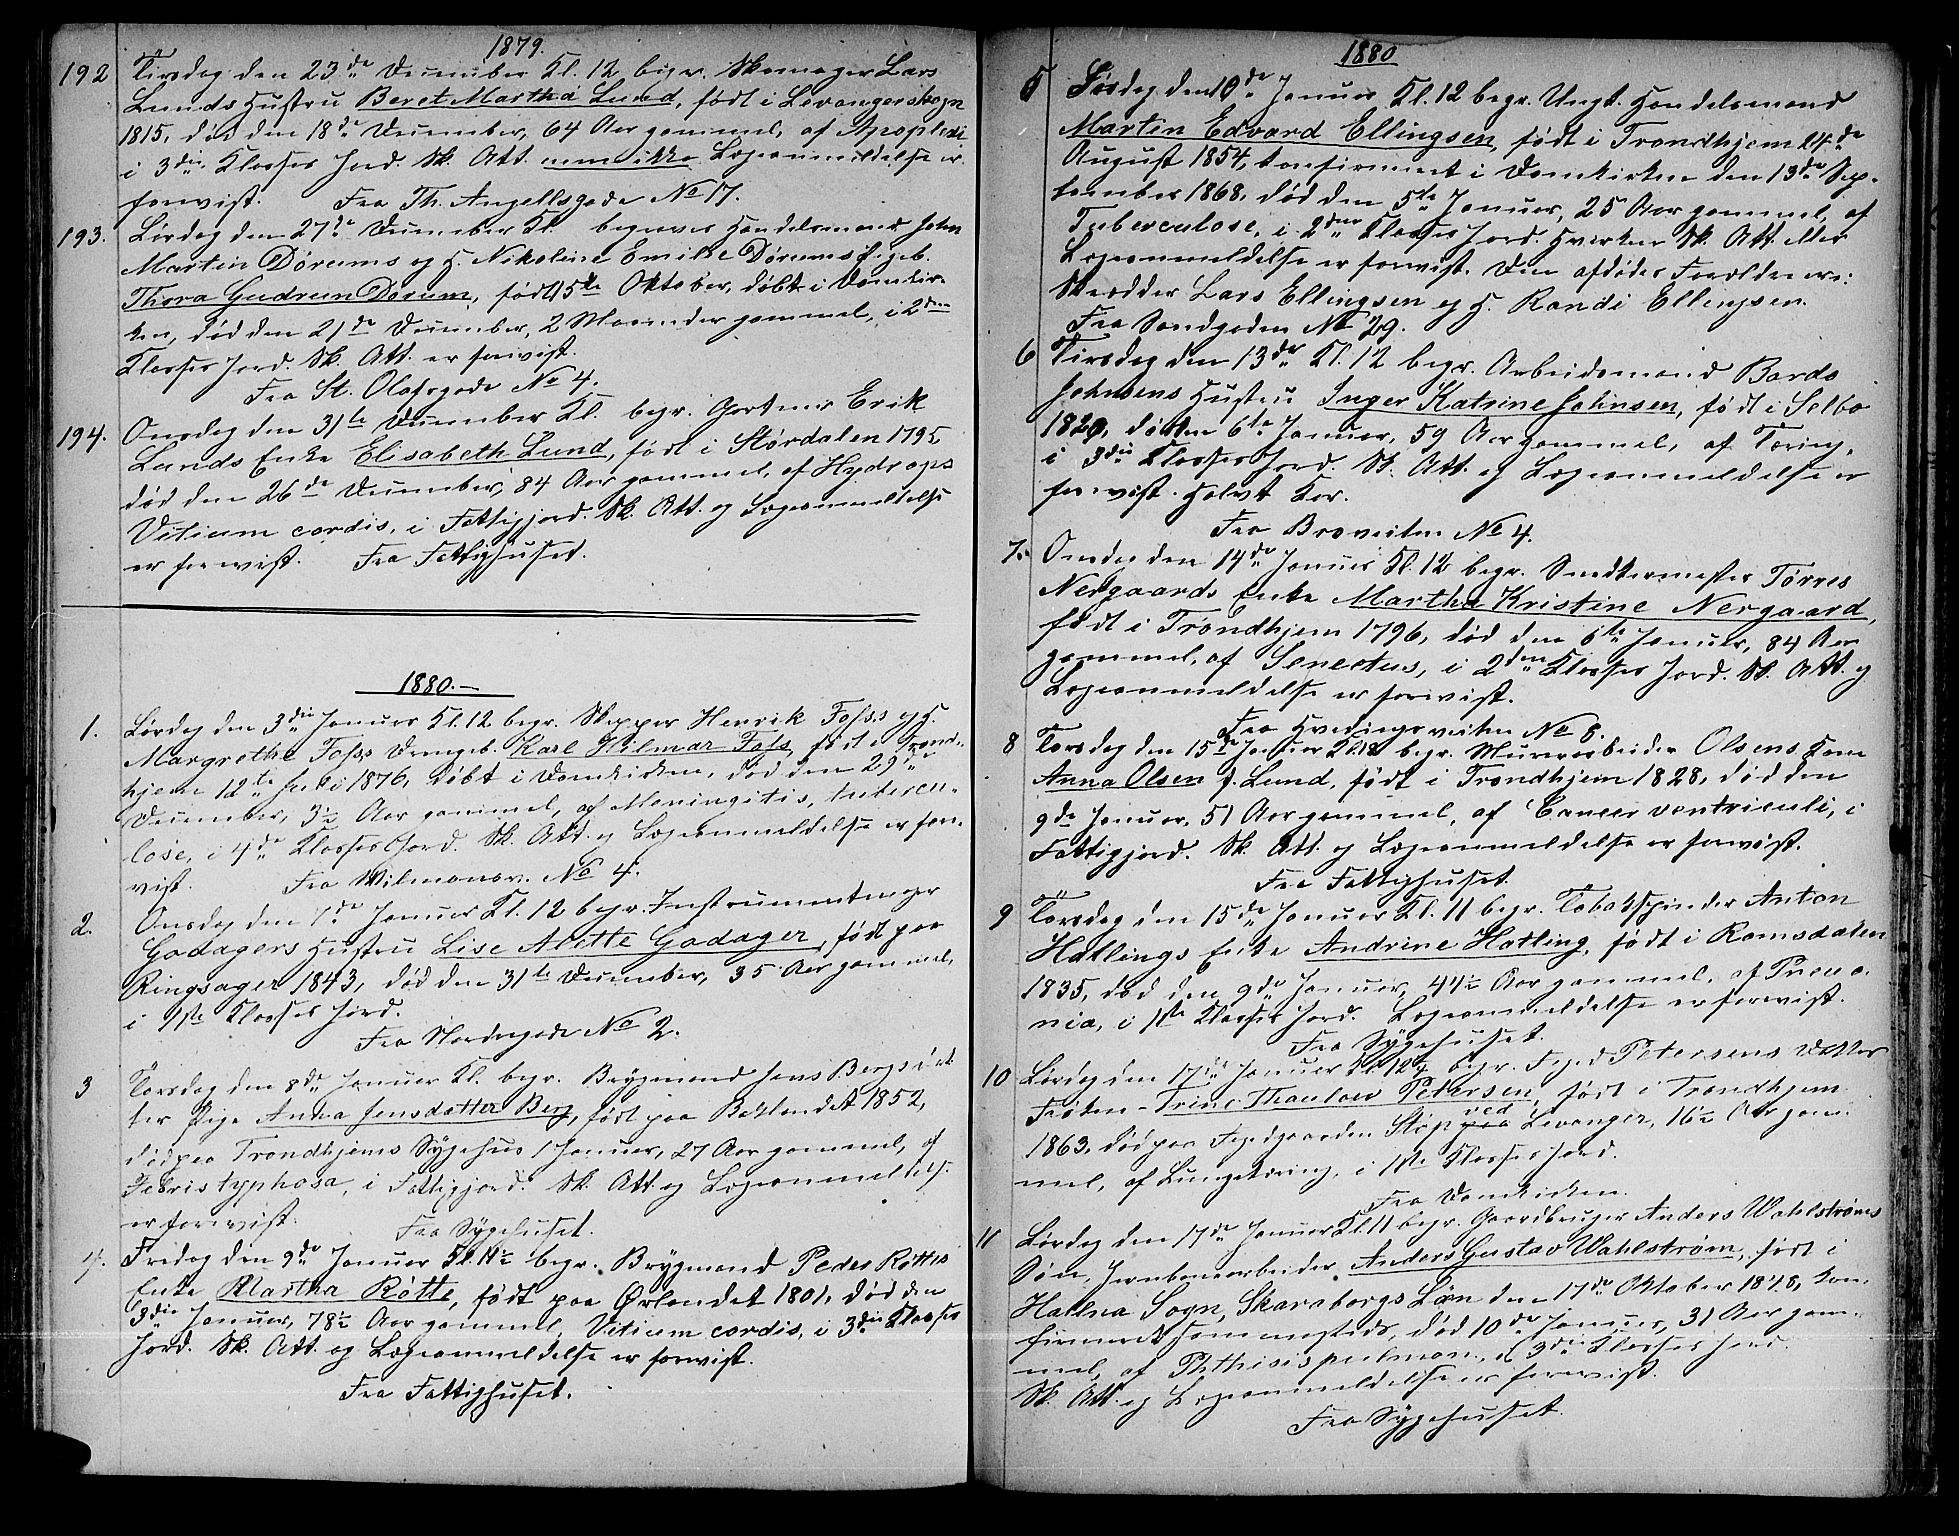 1879.
192 Tirsdag den 23de December Kl. 12 begr. Skomager Lars
Lunds Hustru Beret Martha Lund, født i Levanger Sogn
1815, død den 18de December, 64 Aar gammel, af Apoplexi
i 3die Klasses Jord. Sk. Att. men ikke Lægeanmeldelse er
forevist. Fra Th. Angellsgade No 17.
193. Lørdag den 27de December Kl. begraves Handelsmand John
Martin Dørums og H. Nikoline Emilie Dørums Pigeb.
Thora Gudrun Dørum, født 5te Oktober, døbt i Domkir-
ken, død den 21de December, 2 Maaneder gammel, i 2den
Klasses Jord. Sk. Att. er forevist.
Fra St. Olafsgade No 4.
194. Onsdag den 31te December Kl. begr. Gartner Erik
Lunds Enke Elisabeth Lund, født i Størdalen 1795
død den 26de December, 84 Aar gammel, af Hydrops
Vitium cordis, i Fattigjord. Sk. Att. og Lægeanmeldelse
er forevist. Fra Fattighuset.
1880.—
1. Lørdag den 3die Januar Kl. 12 begr. Skipper Henrik Foss og H.
Margrethe Foss Drengeb. Karl Hilmar Foss, født i Trond-
hjem 12te Juli 1876, døbt i Domkirken, død den 29de
December, 3½ Aar gammel, af Meningitis, tubercu-
lose, i 4de Klasses Jord. Sk. Att. og Lægeanmeldelse er fore-
vist. Fra Wilmansv. No 4.
2. Onsdag den 7de Januar Kl. 12 begr. Instrumentmager
Godagers Hustru Lise Alette Godager, født paa
Ringsager 1843, død den 31te December, 35 Aar gammel,
i 1ste Klasses Jord.
Fra Nordregade No 2.
3 Torsdag den 8de Januar Kl. begr. Brygmand Jens Bergs Dat-
ter Pige Anna Jensdatter Berg, født paa Baklandet 1852,
død paa Trondhjems Sygehus 1 Januar, 27 Aar gammel, af
Febris typhosa, i Fattigjord. Sk. Att og Lægeanmeldelse
er forevist. Fra Sygehuset.
4. Fredag den 9de Januar Kl. 11½ begr. Brygmand Peder Røttes
Enke Martha Røtte, født paa Ørlandet 1801, død den
3die Januar, 78½ Aar gammel, Vitium cordis, i 3die Klasses
Jord. Sk. Att. og Lægeanmeldelse er forevist.
Fra Fattighuset.
1880
5 Lørdag den 10de Januar Kl. 12 begr. Ungk. Handelsmand
Martin Edvard Ellingsen, født i Trondhjem 24de
August 1854, konfirmeret i Domkirken den 13de Sep-
tember 1868, død den 5te Januar, 25 Aar gammel, af
Tuberculose, i 2den Klasses Jord. Hverken Sk. Att. eller
Lægeanmeldelse er forevist. Den afdødes Forældre ere:
Skrædder Lars Ellingsen og H. Randi Ellingsen.
Fra Sandgaden No 29.
6 Tirsdag den 13de Kl. 12 begr. Arbeidsmand Bardo
Johnsens Hustru Inger Katrine Johnsen, født i Selbo
1820, død den 6te Januar, 59 Aar gammel, af Tæring,
i 3die Klasses Jord. Sk. Att. og Lægeanmeldelse er
forevist. Halvt Kor.
Fra Braveiten No 4.
7. Onsdag den 14de Januar Kl. 12 begr. Snedkermester Tørres
Nergaards Enke Martha Kristine Nergaard,
født i Trondhjem 1796, død den 6te Januar, 84 Aar
gammel, af Senectus, i 2den Klasses Jord. Sk. Att. og
Lægeanmeldelse er forevist.
Fra Hvedingsveiten No 8.
8 Torsdag den 15de Januar Kl. 12 begr. Murarbeider Olsens Kone
Anna Olsen f. Lund, født i Trondhjem 1828, død den
9de Januar, 51 Aar gammel, af Cancer ventriculi, i
Fattigjord. Sk. Att. og Lægeanmeldelse er forevist.
Fra Fattighuset.
9 Torsdag den 15de Januar Kl. 11 begr. Tobakspinder Anton
Hatlings Enke Andrine Hatling, født i Romsdalen
1835, død den 9de Januar, 44½ Aar gammel, af Pneumo-
nia, i 1ste Klasses Jord. Lægeanmeldelse er forevist.
Fra Sygehuset.
10 Lørdag den 17de Januar Kl. 12¼ begr. Foged Petersens Datter
Frøken Trine Thaulow Petersen, født i Trondhjem
1863, død paa Fogedgaarden Stap ved Levanger, 16½ Aar gam-
mel, af Lungetæring, i 1ste Klasses Jord.
Fra Domkirken.
11 Lørdag den 17de Januar Kl. 11 begr. Gaardbruger Anders Wahlstrøms
Søn, Jernbanearbeider Anders Gustav Wahlstrøm, født i
Hallna Sogn, Skaraborgs Læn den 17de Oktober 1848, kon-
firmeret sammesteds, død 10de Januar, 31 Aar gam-
mel, af Phthisis pulmon., i 3die Klasses Jord.
Sk. Att. og Lægeanmeldelse er forevist.
Fra Sygehuset.